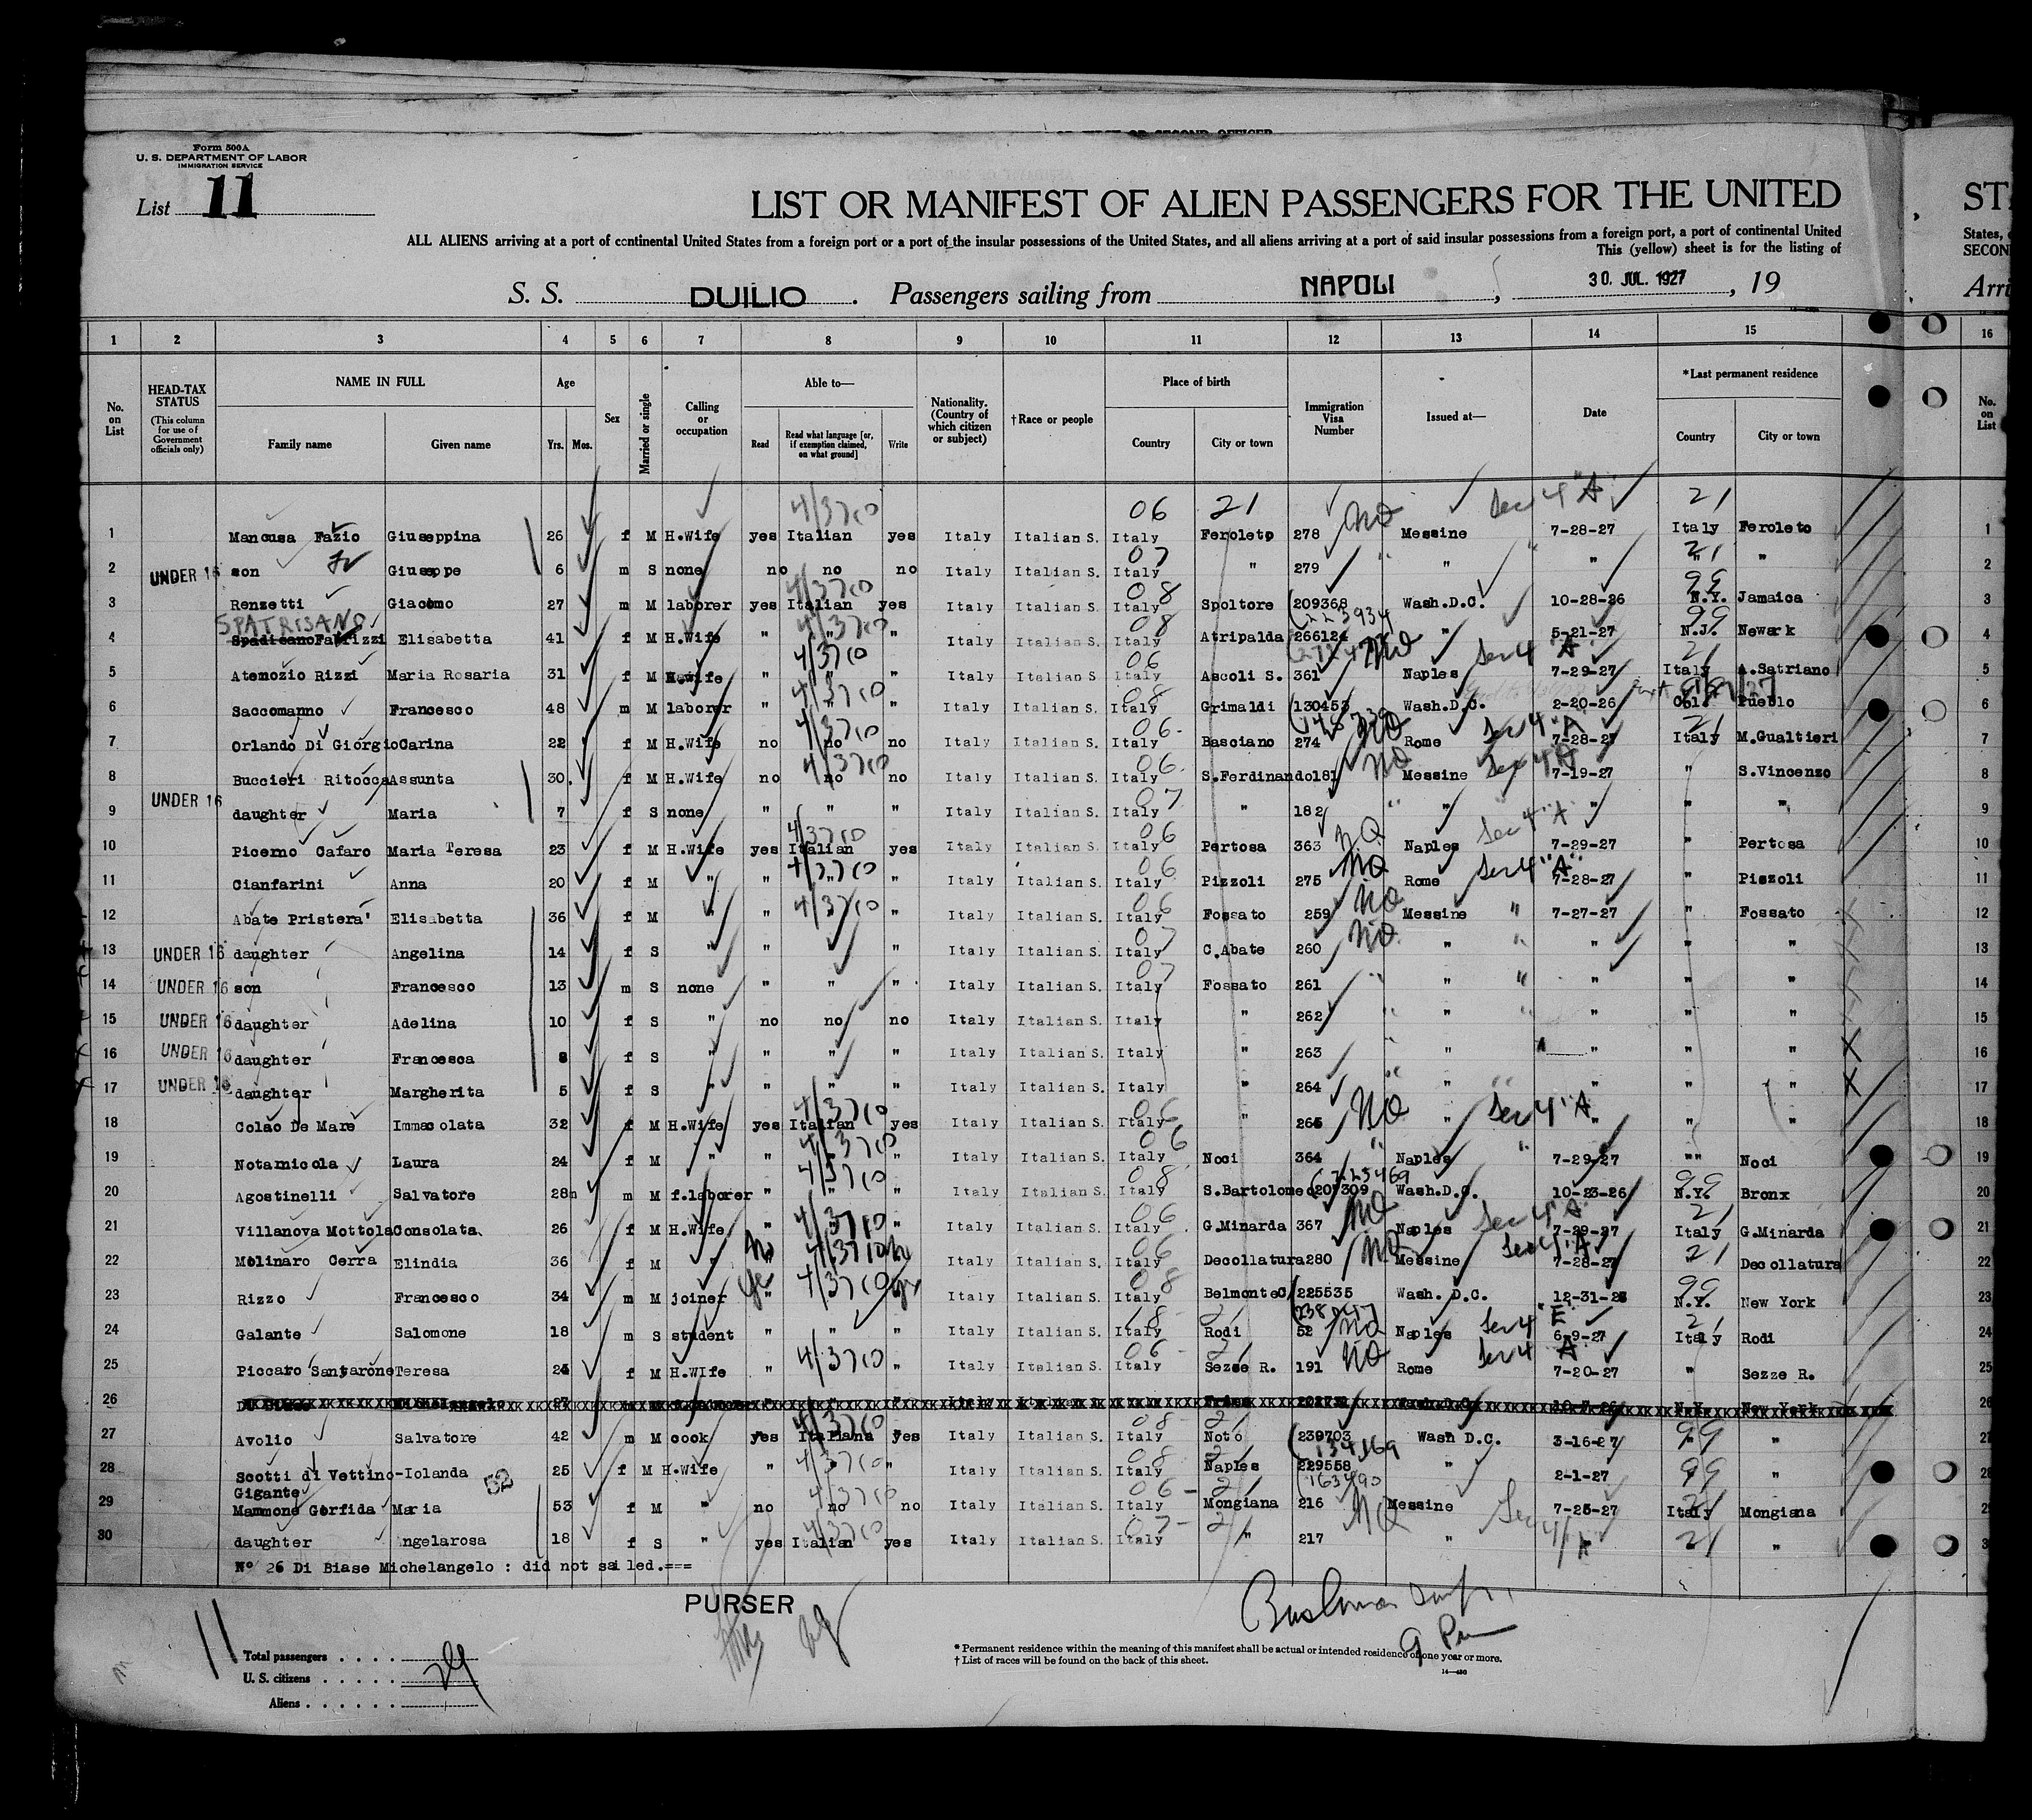 OR FIRST OR SECOND OFFICER
Form 500A
U. S. DEPARTMENT OF LABOR
IMMIGRATION SERVICE
List 11
LIST OR MANIFEST OF ALIEN PASSENGERS FOR THE UNITED
ALL ALIENS arriving at a port of continental United States from a foreign port or a port of the insular possessions of the United States, and all aliens arriving at a port of said insular possessions from a foreign port, a port of continental United
This (yellow) sheet is for the listing of
S. S. DUILIO . Passengers sailing from NAPOLI , 30. JUL. 1927 , 19
ST
States,
SECON
Arri
1 2 3 4 5 6 7 8 9 10 11 12 13 14 15 16
No. on List
HEAD-TAX STATUS (This column for use of Government officials only)
NAME IN FULL Family name Given name
Age Yrs. Mos.
Sex
Married or single
Calling or occupation
Able to— Read Read what language [or, if exemption claimed, on what ground] Write
Nationality. (Country of which citizen or subject)
†Race or people
Place of birth Country City or town
Immigration Visa Number
Issued at—
Date
*Last permanent residence Country City or town
No. on List
4/3710 06 21 NQ Sec 4 "A" 21
1 Mancusa Fazio Giuseppina 26 f M H.Wife yes Italian yes Italy Italian S. Italy Feroleto 278 Messine 7-28-27 Italy Feroleto 1
07 21
2 UNDER 16 son Giuseppe 6 m S none no no no Italy Italian S. Italy " 279 " " " " 2
4/3710 08 99
3 Renzetti Giacomo 27 m M laborer yes Italian yes Italy Italian S. Italy Spoltore 209368 Wash.D.C. 10-28-26 N.Y. Jamaica 3
SPATRISANO 4/3710 08 223934 99
4 Elisabetta 41 f M H.Wife " " " Italy Italian S. Italy Atripalda 266124 " 5-21-27 N.J. Newark 4
4/3710 06 NQ Sec 4 "A" 21
5 Atemozio Rizzi Maria Rosaria 31 f M H.wife " " " Italy Italian S. Italy Ascoli S. 361 Naples 7-29-27 Italy A.Satriano 5
4/3710 08
6 Saccomanno Francesco 48 m M laborer " " " Italy Italian S. Italy Grimaldi 130453 Wash.D.C. 2-20-26 Col. Pueblo 6
4/3710 06 NQ Sec 4 "A" 21
7 Orlando Di Giorgio Carina 22 f M H.Wife no no no Italy Italian S. Italy Basciano 274 Rome 7-28-27 Italy M.Gualtieri 7
4/3710 06 NQ Sec 4 "A"
8 Buccieri Ritocca Assunta 30. f M H.Wife no no no Italy Italian S. Italy S.Ferdinando 181 Messine 7-19-27 " S.Vincenzo 8
07
9 UNDER 16 daughter Maria 7 f S none " " " Italy Italian S. Italy " 182 " " " " 9
4/3710 06 N.Q Sec 4 "A"
10 Picerno Cafaro Maria Teresa 23 f M H.Wife yes Italian yes Italy Italian S. Italy Pertosa 363 Naples 7-29-27 " Pertosa 10
4/3710 06 NQ Sec 4 "A"
11 Cianfarini Anna 20 f M " " " " Italy Italian S. Italy Pizzoli 275 Rome 7-28-27 " Pizzoli 11
4/3710 06 NQ "
12 Abate Pristera' Elisabetta 36 f M " " " Italy Italian S. Italy Fossato 259 Messine 7-27-27 " Fossato 12
07 NQ "
13 UNDER 16 daughter Angelina 14 f S " " " Italy Italian S. Italy C.Abate 260 " " " " 13
07 " "
14 UNDER 16 son Francesco 13 m S none " " " Italy Italian S. Italy Fossato 261 " " " 14
15 UNDER 16 daughter Adelina 10 f S " no no no Italy Italian S. Italy " 262 " " " " 15
16 UNDER 16 daughter Francesca 8 f S " " " " Italy Italian S. Italy " 263 " " " " 16
17 UNDER 16 daughter Margherita 5 f S " " " " Italy Italian S. Italy " 264 " " " " 17
4/3710 06 NQ Sec 4 "A
18 Colao De Mare Immacolata 32 f M H.Wife yes Italian yes Italy Italian S. Italy " 265 " " " " 18
4/3710 06 " "
19 Notarnicola Laura 24 f M " " " " Italy Italian S. Italy Noci 364 Naples 7-29-27 "" Noci 19
4/3710 08 225469 99
20 Agostinelli Salvatore 28 m M f.laborer " " " Italy Italian S. Italy S.Bartolomeo 207309 Wash.D.C. 10-23-26 N.Y. Bronx 20
4/3710 06 NQ Sec 4 "A" 21
21 Villanova Mottola Consolata 26 f M H.Wife " " Italy Italian S. Italy G.Minarda 367 Naples 7-29-27 Italy G.Minarda 21
No 4/3710 No 06 NQ Sec 4 "A" 21
22 Molinaro Cerra Elindia 36 f M " " Italy Italian S. Italy Decollatura 280 Messine 7-28-27 Decollatura 22
4/3710 08 99
23 Rizzo Francesco 34 m M joiner " Italy Italian S. Italy Belmonte C/ 225535 Wash. D.C. 12-31-26 N.Y. New York 23
18 21 NQ Sec 4 "E" 21
24 Galante Salomone 18 m S student " " " Italy Italian S. Italy Rodi 52 Naples 6-9-27 Italy Rodi 24
4/3710 06 21 NQ Sec 4 "A"
25 Piccaro Santarone Teresa 24 f M H.WIfe " " Italy Italian S. Italy Sezze R. 191 Rome 7-20-27 " Sezze R. 25
26 27 Italy Italian S. Italy N.Y. New York 26
4/3710 08 21 99
27 Avolio Salvatore 42 m M cook yes Italiana yes Italy Italian S. Italy Noto 239703 Wash D.C. 3-16-27 " " 27
4/3710 08 21 134169 99
28 Scotti di Vettino-Iolanda 25 f M H.Wife " " " Italy Italian S. Italy Naples 229558 " 2-1-27 " 28
Gigante 52 4/3710 06 - 21 163490 NQ Sec 4/A
29 Mammone Gorfida Maria 53 f M " no no no Italy Italian S. Italy Mongiana 216 Messine 7-25-27 Italy Mongiana 29
4/3710 07 - 21 21
30 daughter ngelarosa 18 f S " yes Italian yes Italy Italian S. Italy " 217 " " " 3
No 26 Di Biase Michelangelo : did not sailed.===
PURSER
11
Total passengers . . . .
U. S. citizens . . . . . 29
Aliens . . . . . .
* Permanent residence within the meaning of this manifest shall be actual or intended residence of one year or more.
† List of races will be found on the back of this sheet.
14—430